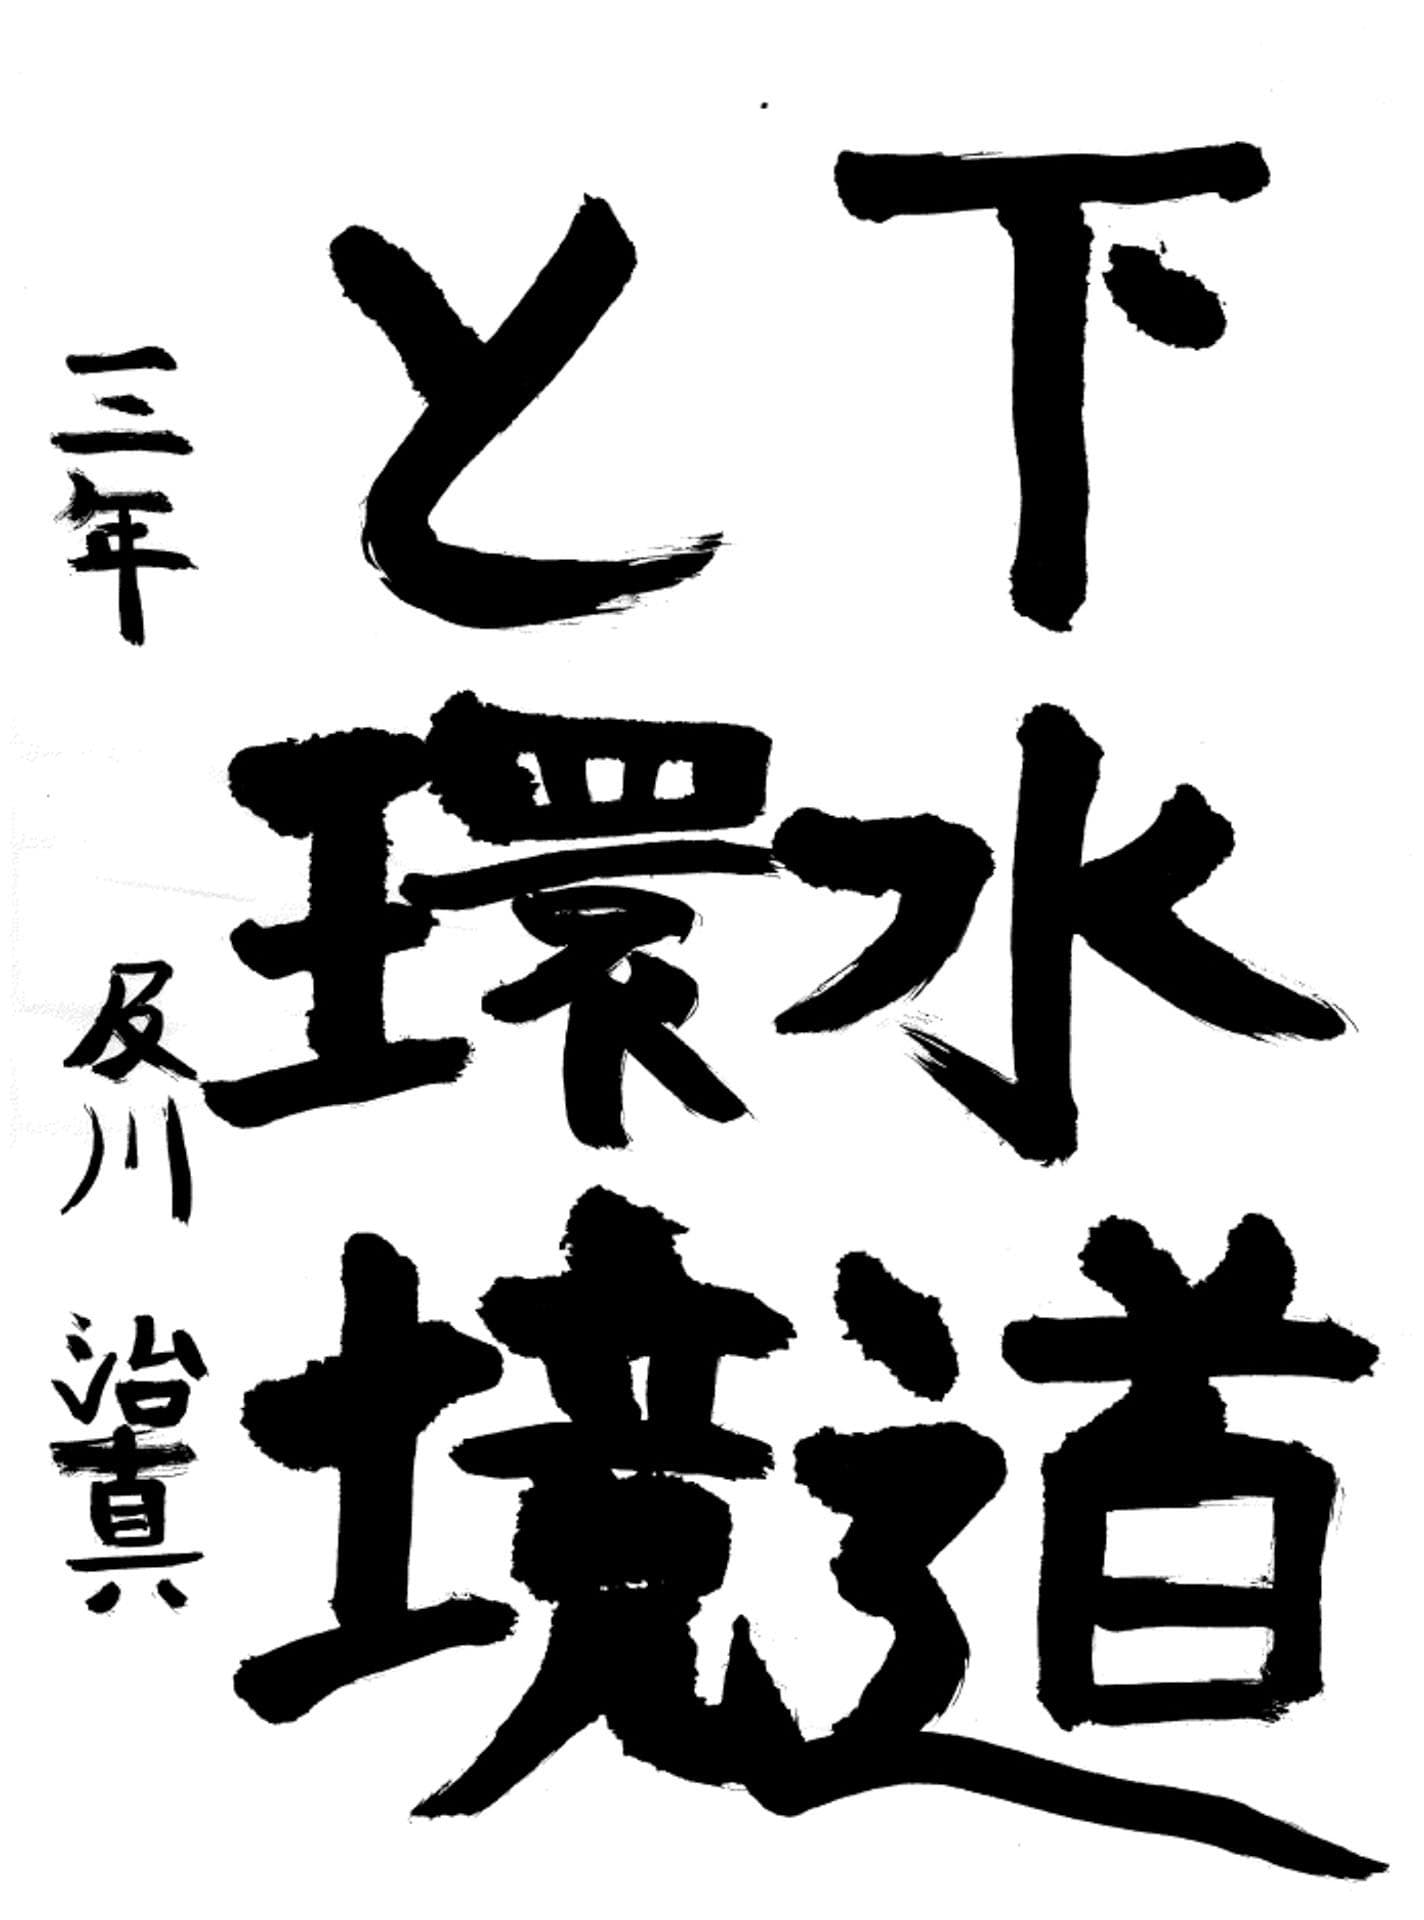 下水道
と環境
三年 及川治真